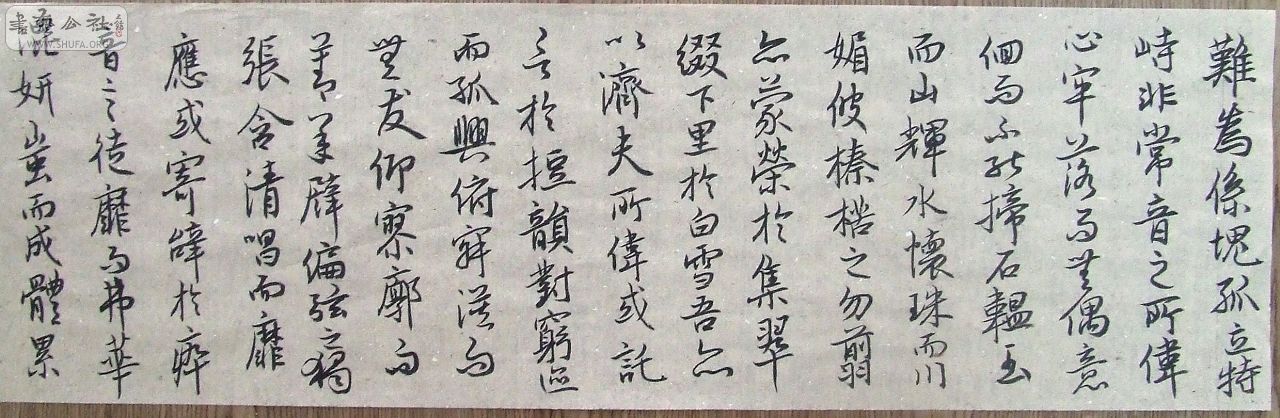 難為係塊孤立特
峙非常音之所偉
心牢落而無偶意
佪而不能揥石韞玉
而山輝水懷珠而川
媚彼榛楛之勿翦
亦蒙榮於集翠
綴下里於白雪吾亦
以濟夫所偉或託
言於短韻對窮迹
而孤興俯寂寞而
無友仰寥廓而
莫承譬偏弦之獨
張含清唱而靡
應或寄辭於瘁
音言徒靡而弗華
混妍蚩而成體累
書法公社
WWW.SHUFA.ORG